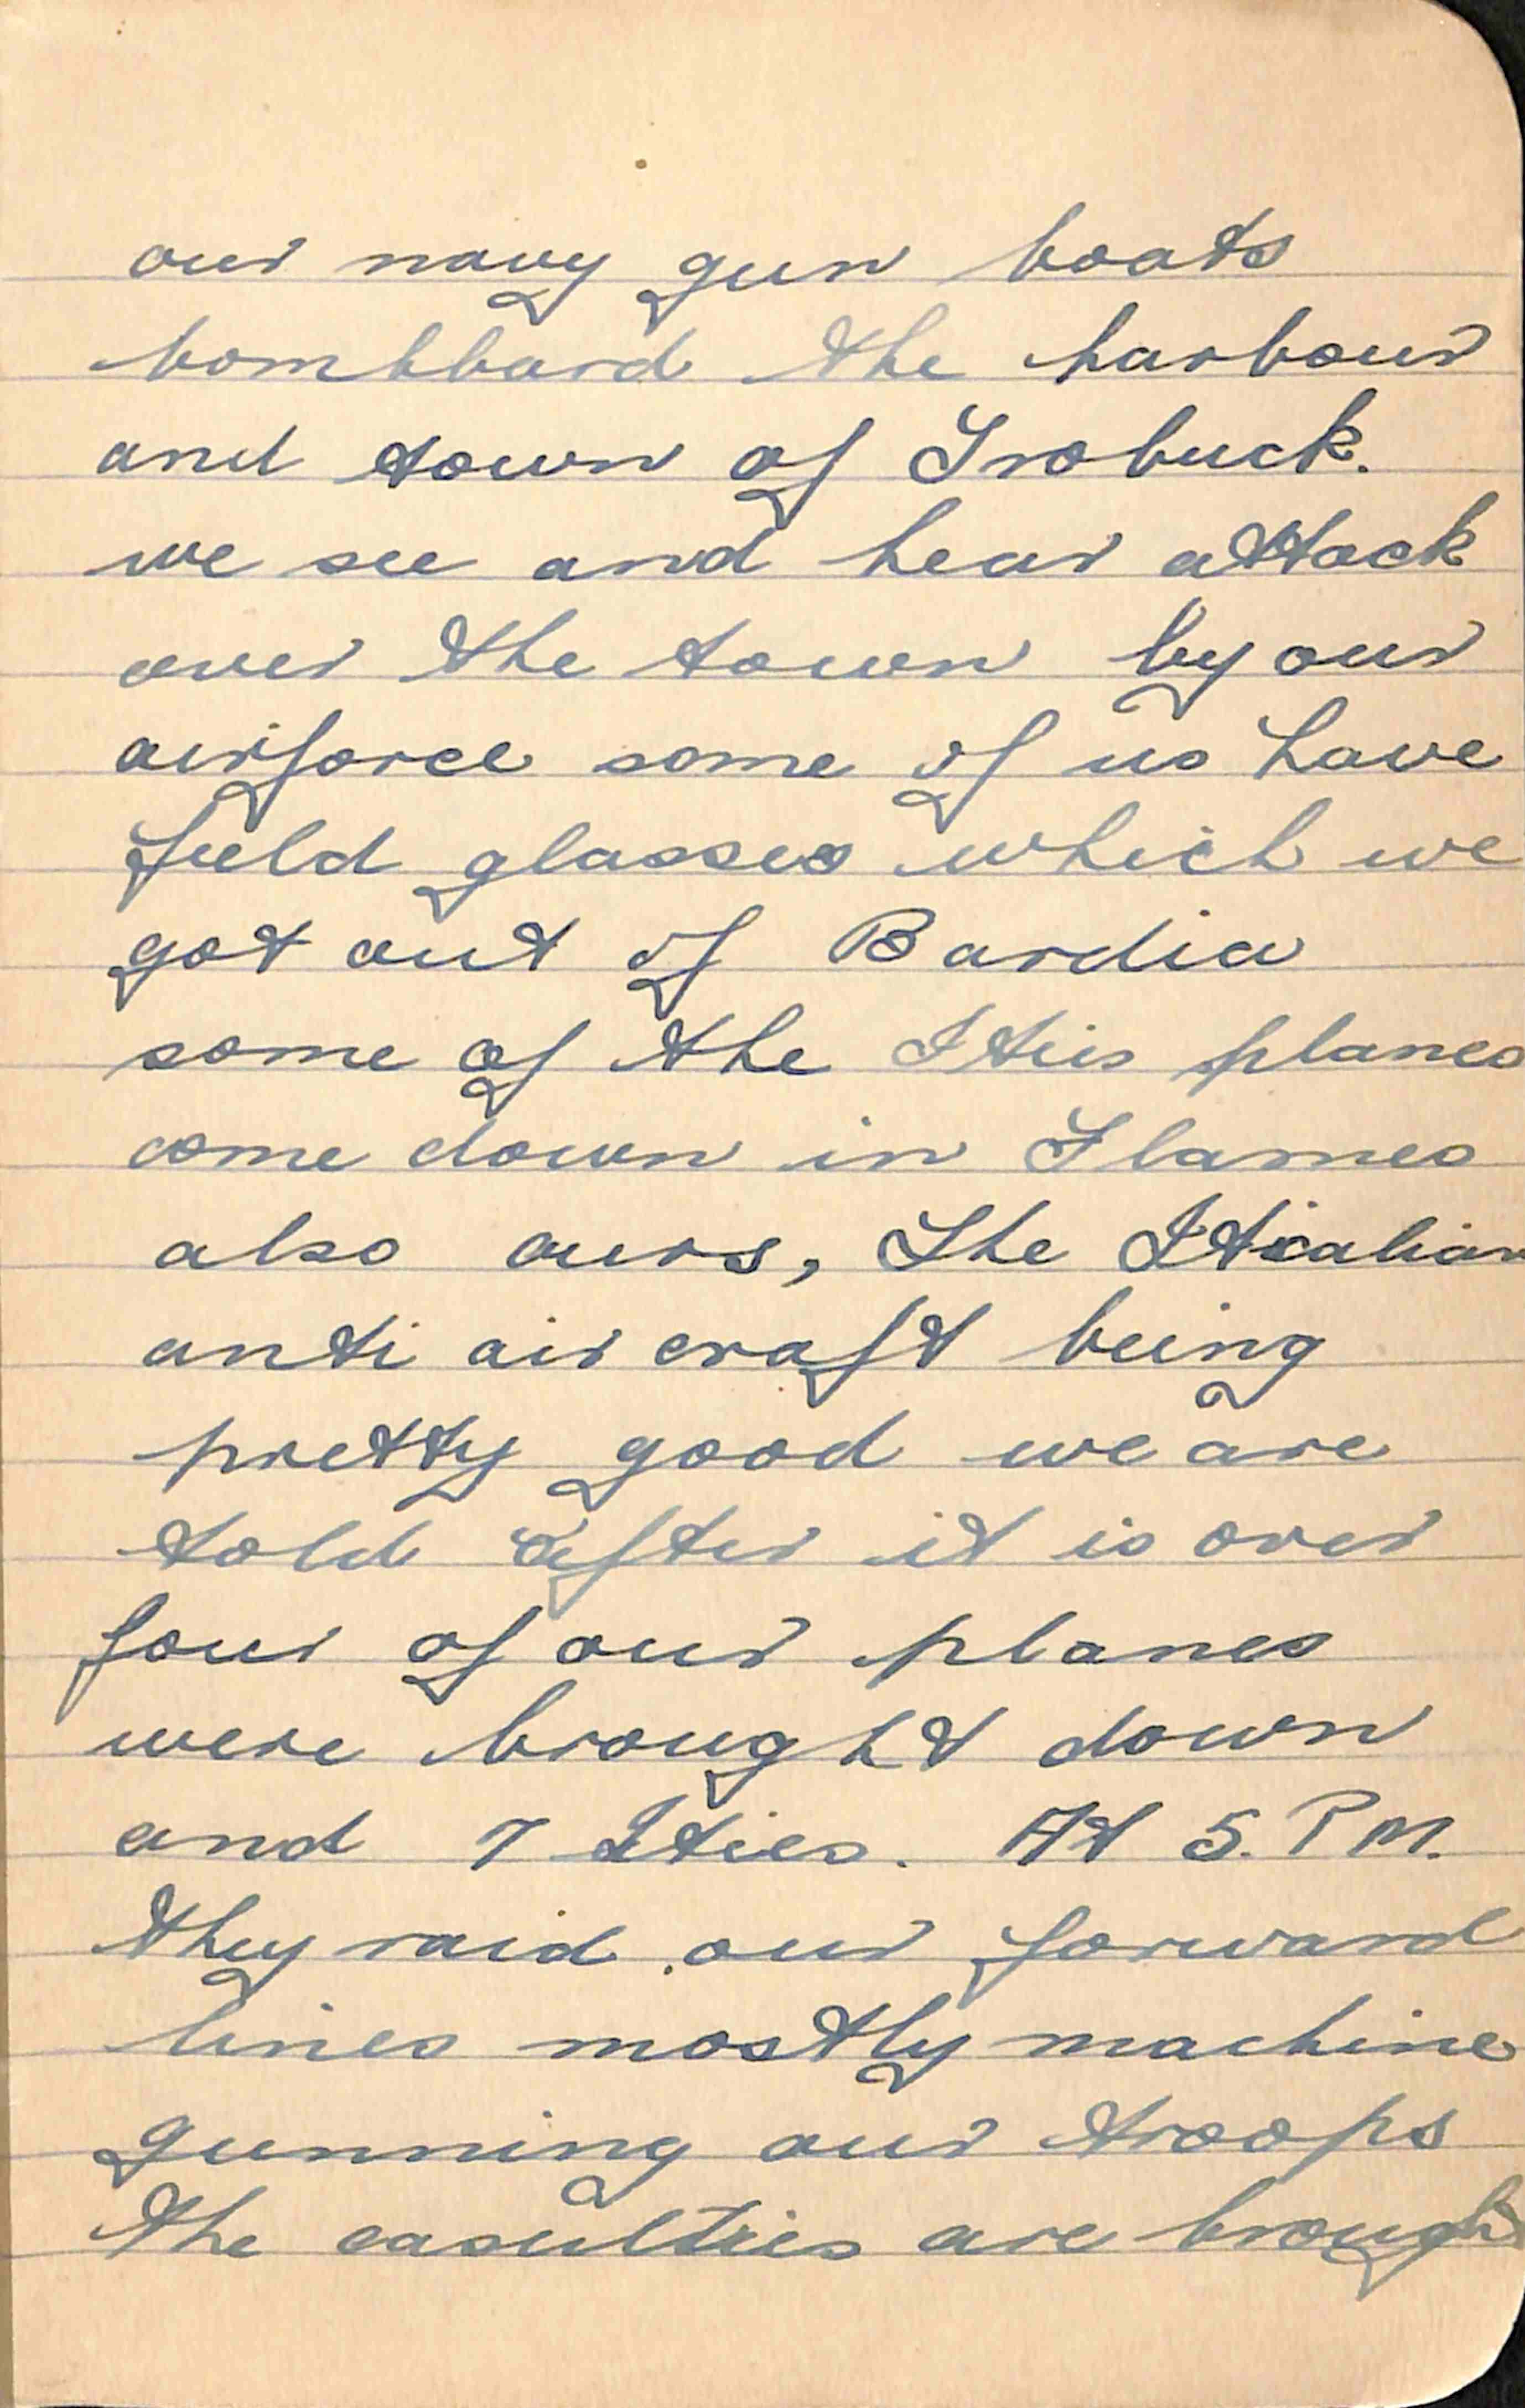 our navy gun boats
bombbard the harbour
and town of Trobuck.
we see and hear attack
over the town by our
airforce some of us have
field glasses which we
got out of Bardia
some of the Itiis planes
come down in Flames
also ours, The Itialian
anti air craft being
pretty good we are
told after it is over
four of our planes
were brought down
and 7 Ities. At 5. P M.
they raid our forward
lines mostly machine
gunning our troops
the casulties are brought